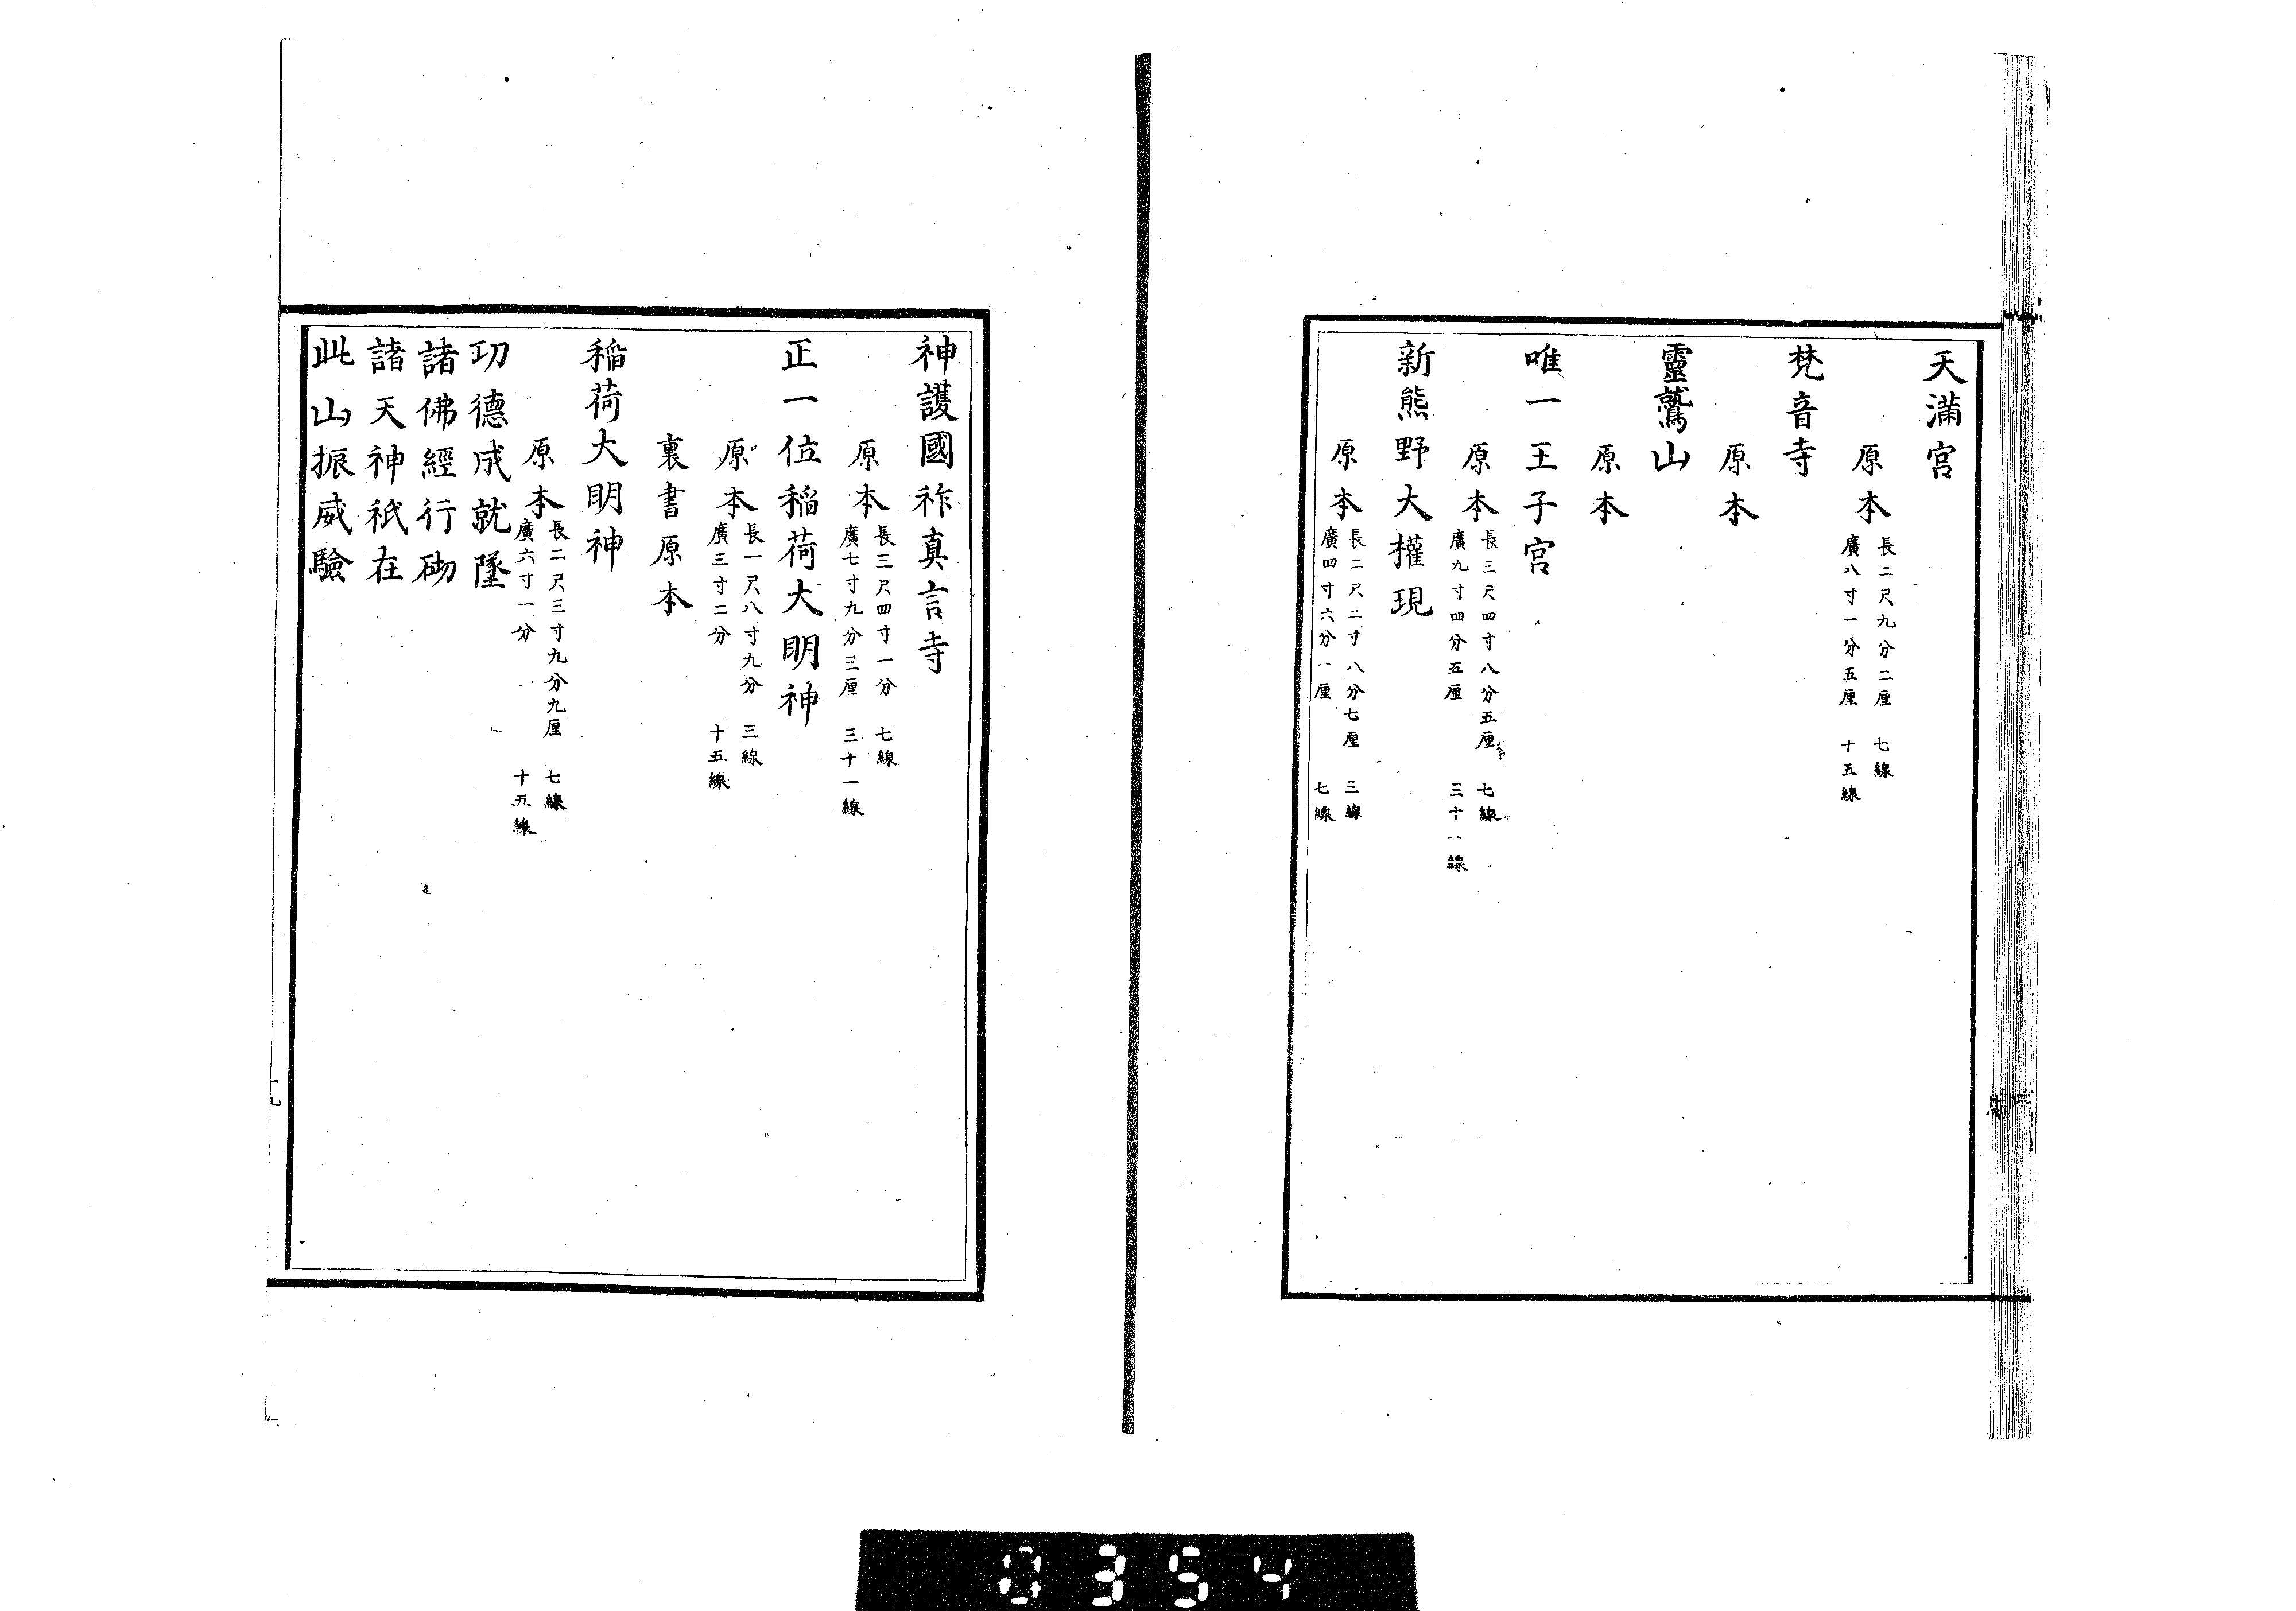 天滿宮
原本 長二尺九分二厘 七線
廣八寸一分五厘 十五線
梵音寺
原本
靈鷲山
原本
唯一王子宮
原本 長三尺四寸八分五厘 七線
廣九寸四分五厘 三十一線
新熊野大權現
原本 長二尺二寸八分七厘 三線
廣四寸六分一厘 七線
神護國祚真言寺
原本 長三尺四寸一分 七線
廣七寸九分三厘 三十一線
正一位稲荷大明神
原本 長一尺八寸九分 三線
廣三寸二分 十五線
裏書原本
稲荷大明神
原本 長二尺三寸九分九厘 七線
廣六寸一分 十五線
功德成就墜
諸佛經行砌
諸天神祇在
此山振威驗
0354